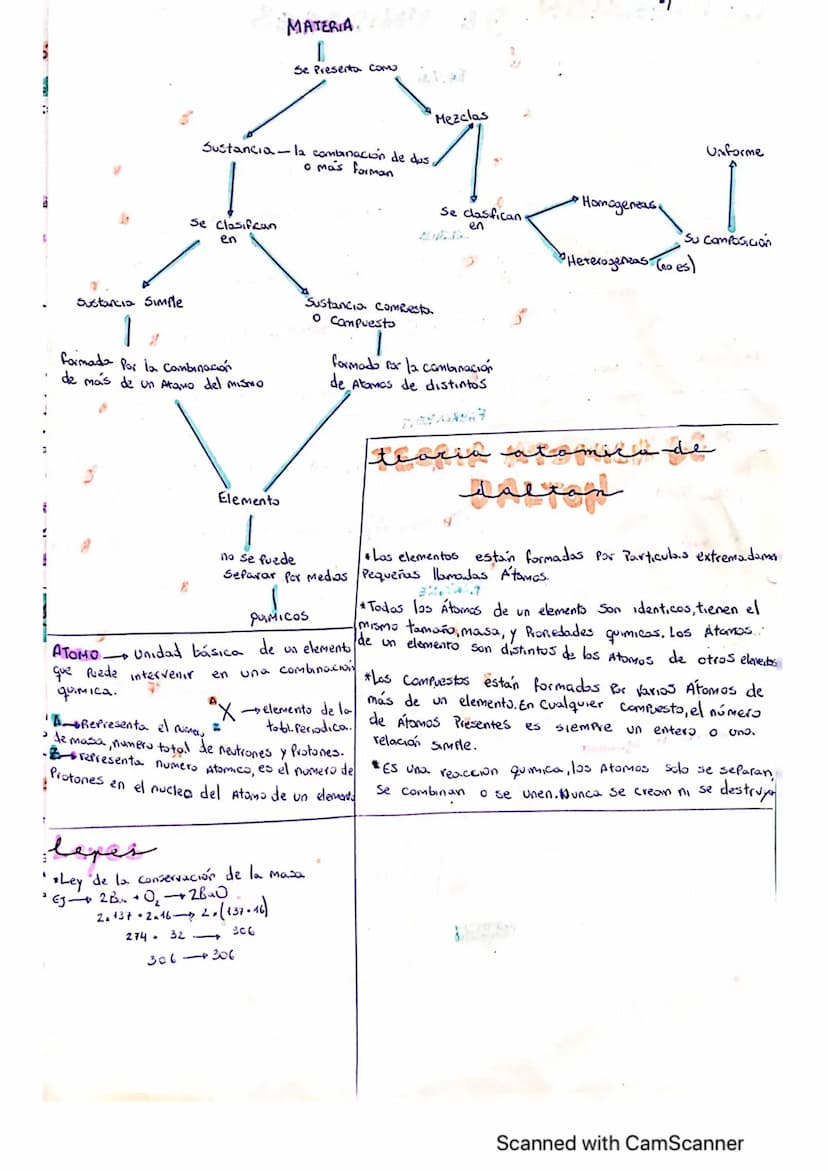 MATERIA
Se Presenta como
Mezclas
Sustancia — la combinación de dos
o más forman
Uniforme
Se clasifican
en
Homogeneas
Su composición
Heterogeneas (no es)
Se clasifican
en
Sustancia Simple
Sustancia Compuesta
o compuesto
formada Por la Combinación
de más de un Atomo del mismo
formado Por la combinación
de Atomos de distintos
Elemento
no se puede
Separar Por medios
quimicos
teoria atomica de
dalton
*Los elementos están formados Por Particulas extremadame
Pequeñas llamadas Átomos.
*Todos los Átomos de un elemento son identicos, tienen el
mismo tamaño, masa, y Propiedades quimicas. Los Átomos
de un elemento son distintos de los Atomos de otros elementos
*Los compuestos están formados Por varios Átomos de
más de un elemento. En cualquier compuesto, el número
de Átomos Presentes es siempre un entero o una
relación simple.
*Es una reacción quimica, los Atomos solo se separan,
se combinan o se unen. Nunca se crean ni se destruye
ATOMO → Unidad básica de un elemento
que Puede intervenir en una combinación
quimica.
A
Z X → elemento de la
tabl. Periodica.
A → Representa el num,
de masa, numero total de neutrones y Protones.
Z → representa numero Atomico, es el numero de
Protones en el nucleo del Atomo de un elemento
leyes
*Ley de la conservación de la masa
Ej → 2Ba + O2 → 2BaO
2 . 137 + 2 . 16 → 2 . (137 + 16)
274 + 32 → 306
306 → 306
Scanned with CamScanner